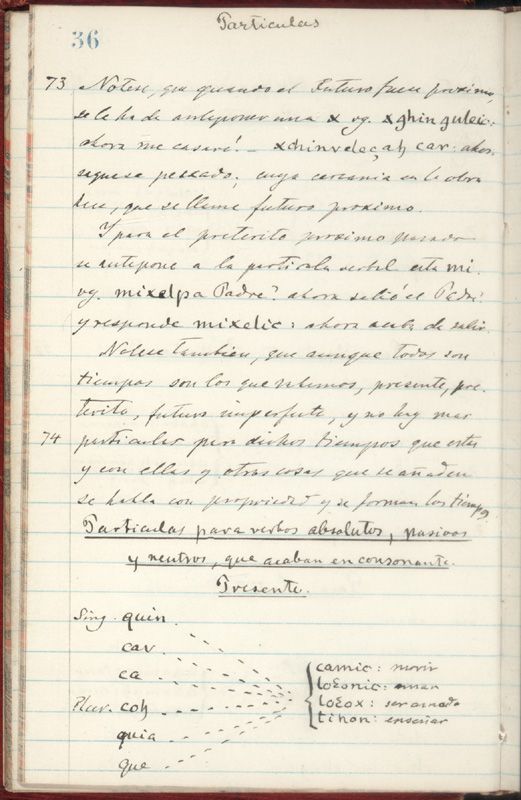 Particulas
36
73 Notese, que quando el Futuro fuere proximo,
se le ha de anteponer una x vg. xghin guleic:
ahora me casaré! – xchinveleçaḩ car: ahora
se pescado; cuya cercania en la obra
hace, que se llame futuro proximo.
Y para el preterito proximo pasado
se antepone a la particula verbal esta mi.
vg. mixelpa Padre? ahora salió el Padre?
y responde mixelic: ahora acaba de salir.
Notese tambien, que aunque todos son
tiempos son los que sabemos, presente, pre-
terito, futuro imperfecto, y no hay mas
74 particulas para dichos tiempos que estas
y con ellas y otras cosas que se añaden
se habla con propriedad y se forman los tiempos
Particulas para verbos absolutos, pasivos
y neutros, que acaban en consonante.
Presente.
Sing. quin
cav
ca
Plur. coḩ
quia
que
camic: morir
loɛonic: amar
loɛox: ser amado
tihon: enseñar